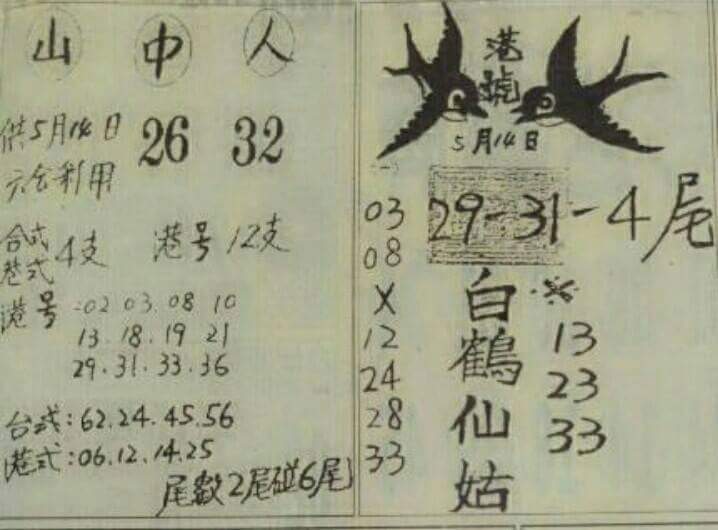 山中人
供5月14日
六合利用
26 32
台式
港式
4支
港号12支
港号
02 03.08 10
13.18.19 21
29.31.33.36
台式:62.24.45.56
港式:06.12.14.25
尾數2尾碰6尾
港號
5月14日
03
08
X
12
24
28
33
29-31-4尾
白鶴仙姑
13
23
33